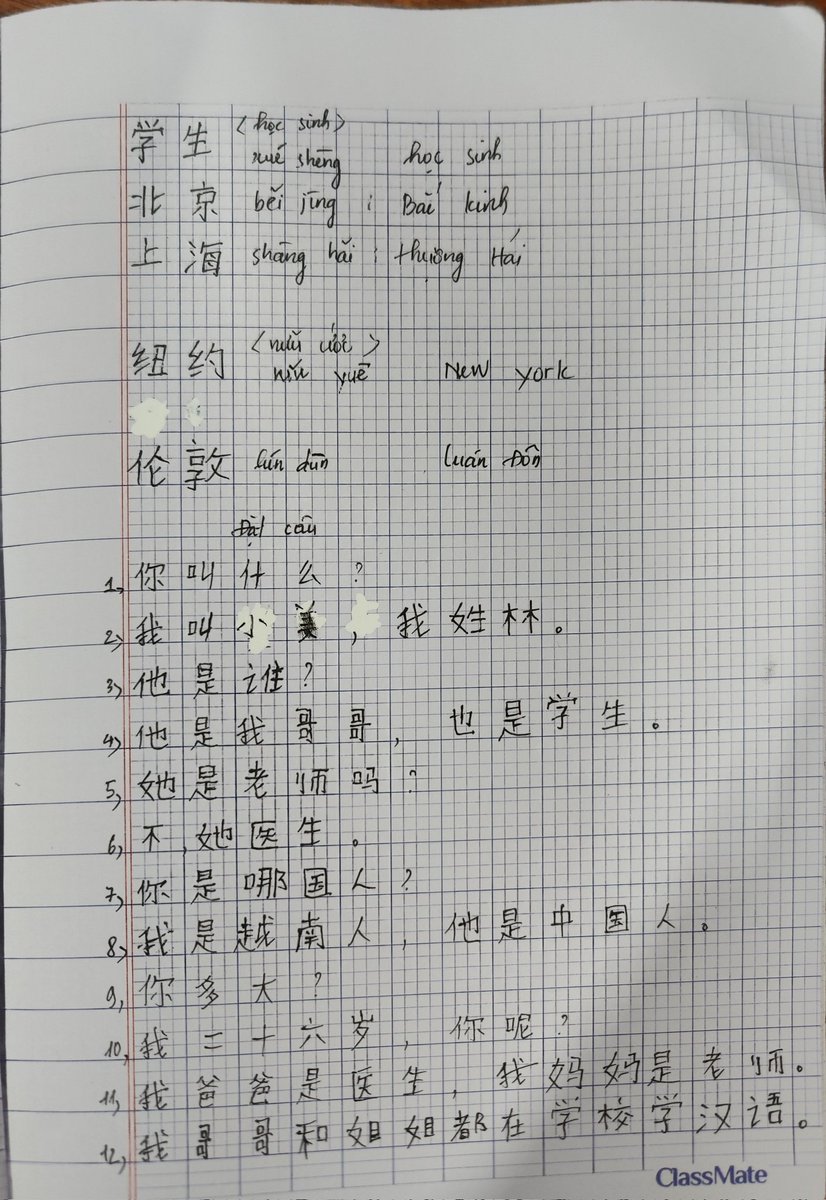 学生 <học sinh>
xué shēng học sinh
北京 běi jīng : Bắc kinh
上海 shāng hǎi : thượng Hải
纽约 <nữu ước>
niǔ yuē New york
伦敦 lún dūn Luân Đôn
Đặt câu
1, 你叫什么?
2, 我叫小美, 我姓林。
3, 他是谁?
4, 他是我哥哥, 也是学生。
5, 她是老师吗?
6, 不, 她医生。
7, 你是哪国人?
8, 我是越南人, 他是中国人。
9, 你多大?
10, 我二十六岁, 你呢?
11, 我爸爸是医生, 我妈妈是老师。
12, 我哥哥和姐姐都在学校学汉语。
ClassMate